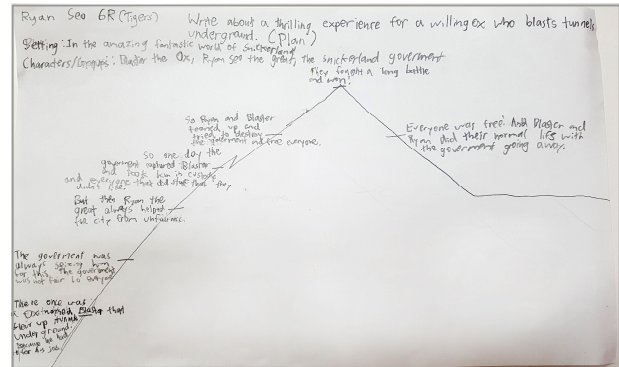 Ryan Seo 6R (Tigers)
Write about a thrilling experience for a willing ox who blasts tunnels
underground. (Plan)
Setting: In the amazing fantastic world of Snickerland
Characters/Groups: Blaster the Ox, Ryan Seo the great, the snickerland goverment
They fought a long battle
and won!
So Ryan and Blaster
teamed up and
tried to destroy
the goverment and free everyone.
Everyone was free. And Blaster and
Ryan did their normal lifes with
the government going away.
So one day the
goverment captured Blaster
and took him in custody
and everyone that did stuff that they
But then Ryan the
great always helped
the city from unfairness.
The goverment was
always seizing him
for this. The government
was not fair to everyone
There once was
a Ox named Blaster that
blew up tunnels
underground.
because he had
for his job.